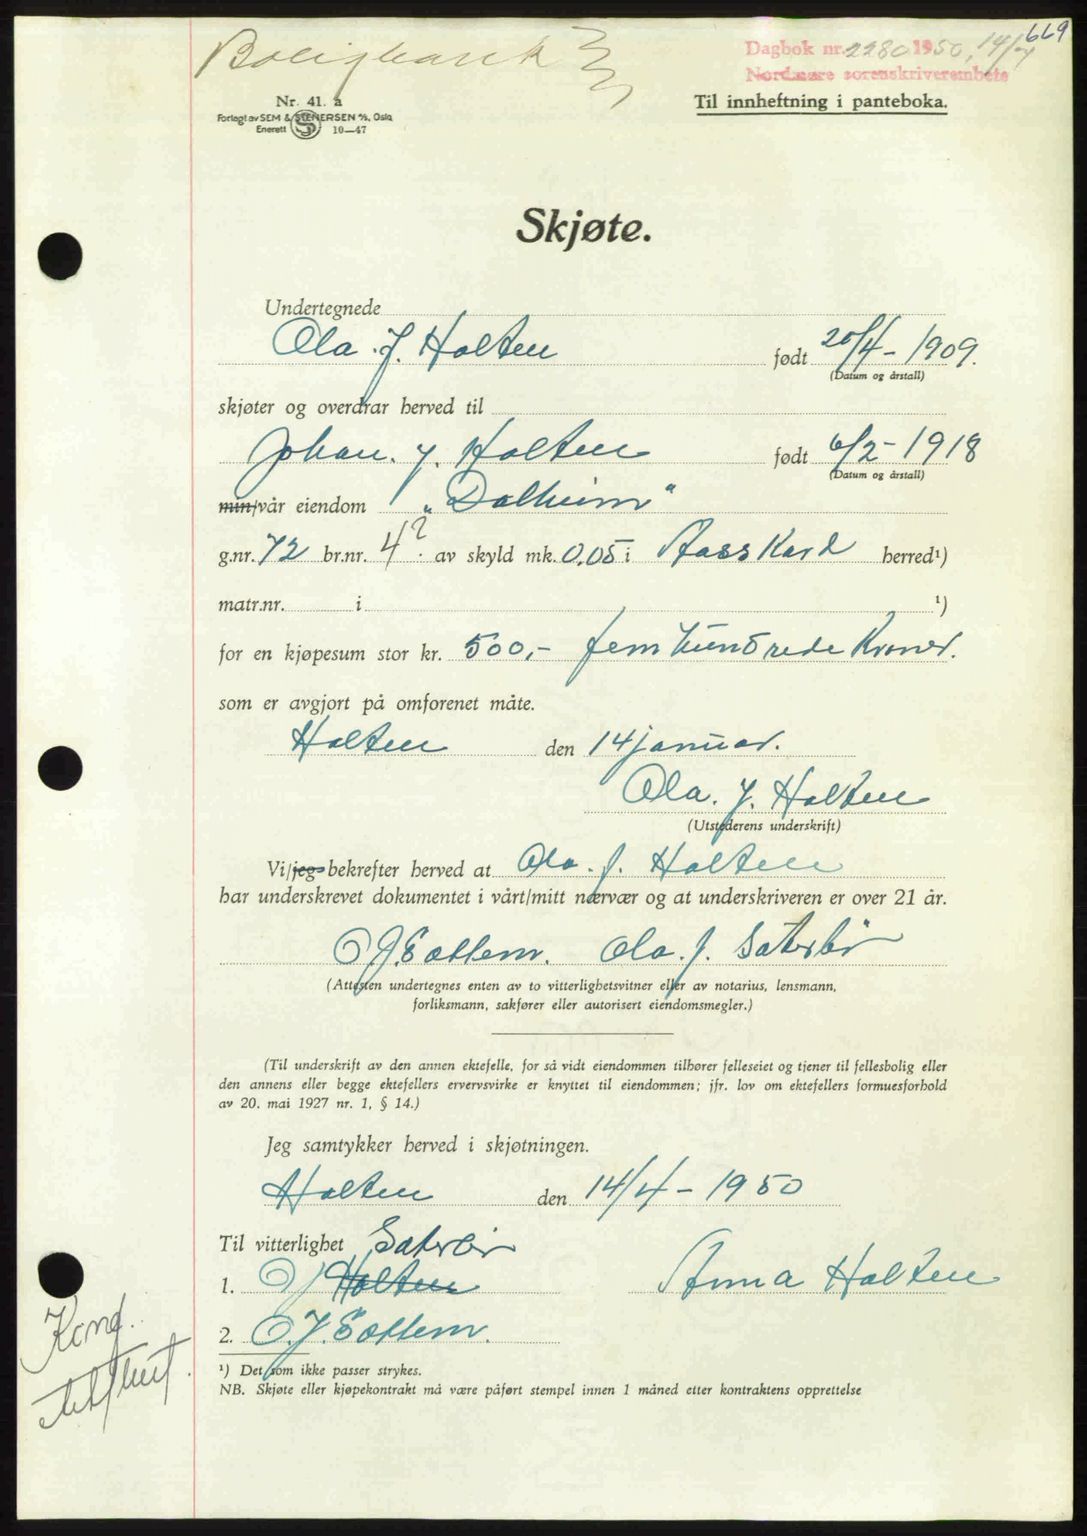 669
Boligbank
Dagbok nr. 2280 1950, 14/7
Nordmøre sorenskriverembete
Nr. 41. a
Forlagt av SEM & STENERSEN A/S, Oslo
Enerett 10—47
Til innheftning i panteboka.
Skjøte.
Undertegnede
Ola J. Holten født 20/4 - 1909.
(Datum og årstall)
skjøter og overdrar herved til
Johan. J. Holten født 6/2 - 1918
(Datum og årstall)
min/vår eiendom „Dalheim"
g.nr. 72 br.nr. 4? av skyld mk. 0.05 i Aasskard herred¹)
matr.nr. i ¹)
for en kjøpesum stor kr. 500,- fem hundrede Kroner.
som er avgjort på omforenet måte.
Holten den 14 januar.
Ola. J. Holten
(Utstederens underskrift)
Vi/jeg bekrefter herved at Ola. J. Holten
har underskrevet dokumentet i vårt/mitt nærvær og at underskriveren er over 21 år.
O J. Settem. Ola. J. Sæterbø
(Attesten undertegnes enten av to vitterlighetsvitner eller av notarius, lensmann,
forliksmann, sakfører eller autorisert eiendomsmegler.)
(Til underskrift av den annen ektefelle, for så vidt eiendommen tilhører felleseiet og tjener til fellesbolig eller
den annens eller begge ektefellers ervervsvirke er knyttet til eiendommen; jfr. lov om ektefellers formuesforhold
av 20. mai 1927 nr. 1, § 14.)
Jeg samtykker herved i skjøtningen.
Holten den 14/4 - 1950
Til vitterlighet Sæterbø
1. O J Holten Anna Holten
2. O. J. Settem.
¹) Det som ikke passer strykes.
NB. Skjøte eller kjøpekontrakt må være påført stempel innen 1 måned etter kontraktens opprettelse
Konf.